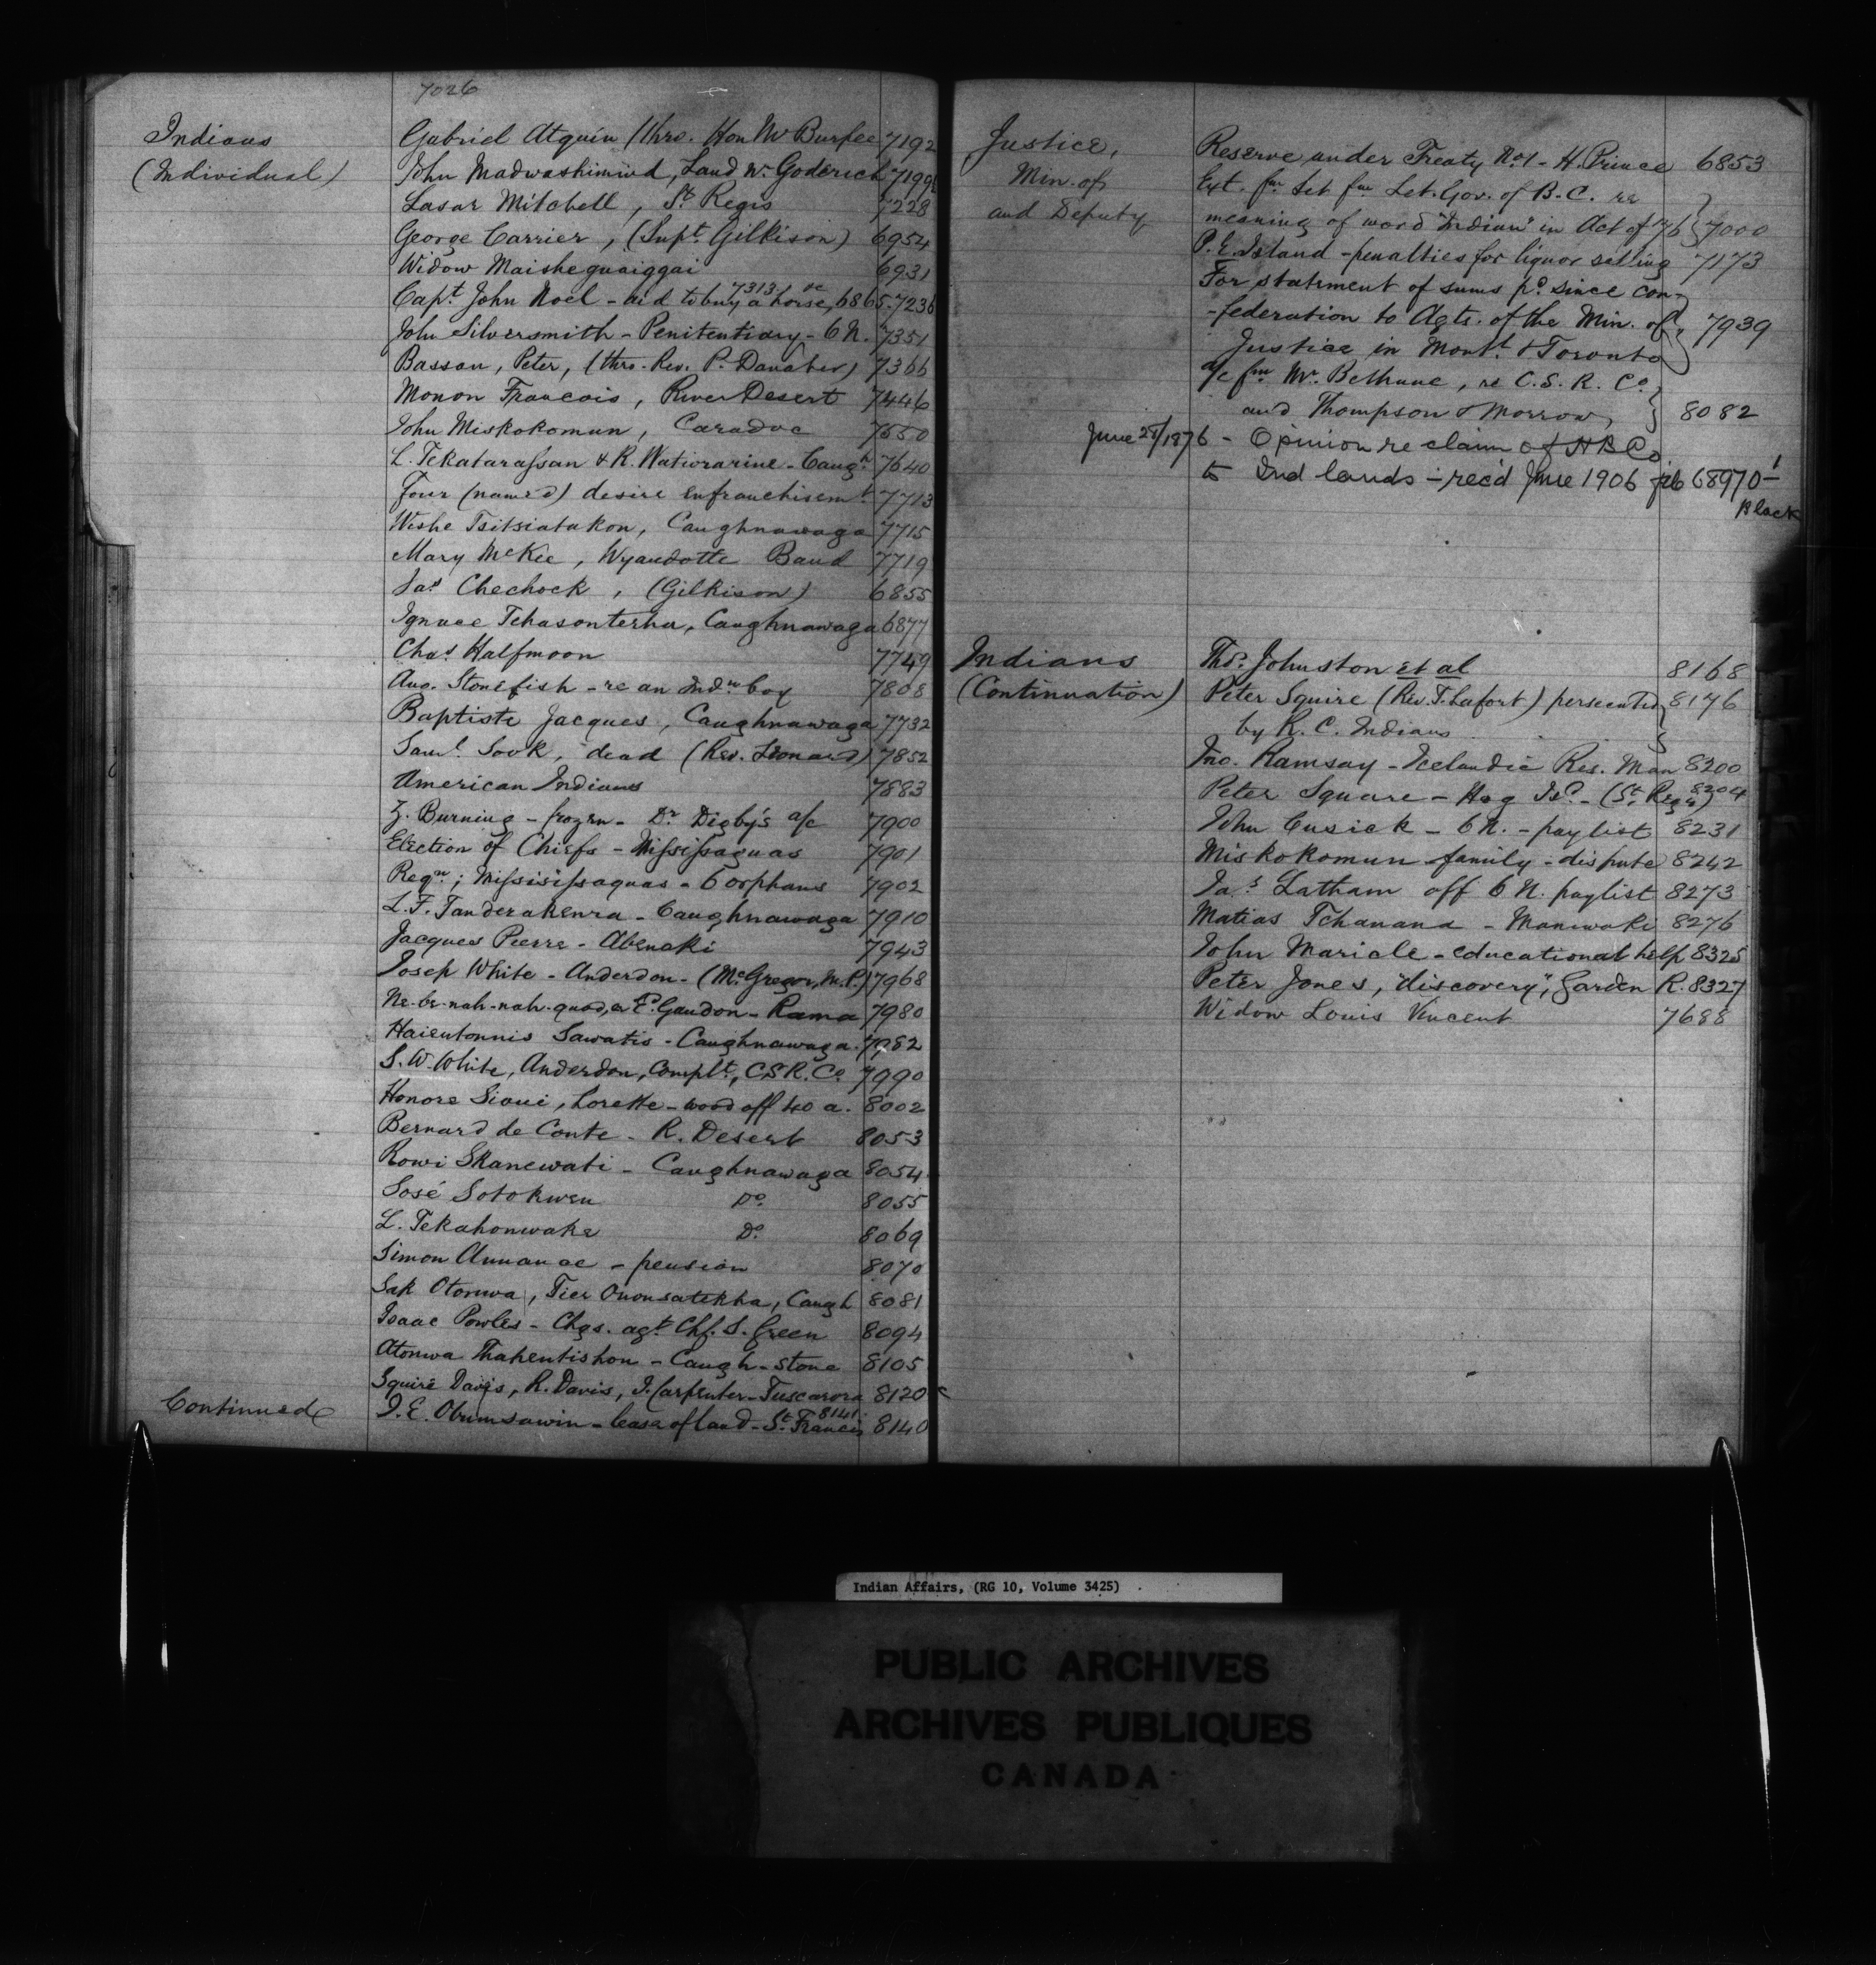 7026
Indians
(Individual)
Gabriel Atquin (thro. Hon Mr Burpee 7192
John Madwashimind, Land nr. Goderich 7199½
Lasar Mitchell, St. Regis 7228
George Carrier, (Supt. Gilkison) 6954
Widow Maisheguaiggai 6931
7313, &c
Capt. John Noel - aid to buy a horse, 6865. 7236
John Silversmith - Penitentiary - 6 N. 7351
Bassan, Peter, (thro. Rev. P. Danaher) 7366
Monon Francois, River Desert 7446
John Miskokomun, Caradoc 7550
L. Tekatarassan & R. Watiorarine - Caugh. 7640
Four (named) desire enfranchisemt. 7713
Wishe Tsitsiatakon, Caughnawaga 7715
Mary McKee, Wyandotte Band 7719
Jas. Chechock, (Gilkison) 6855
Ignace Tehasonterha, Caughnawaga 6877
Chas. Halfmoon 7749
Aug. Stonefish - re an Indn. boy 7808
Baptiste Jacques, Caughnawaga 7732
Saml. Sook, dead (Rev. Leonard) 7852
American Indians 7883
Z. Burning - frozen - Dr. Digby's a/c 7900
Election of Chiefs - Mississaguas 7901
Reqn; Missisissaquas - 6 orphans 7902
L. F. Tanderakenra - Caughnawaga 7910
Jacques Pierre - Abenaki 7943
Joseph White - Anderdon - (McGregor, M.P.) 7968
Ne-be-nah-nah-quod, or P. Gaudon - Rama 7980
Haientonnis Sawatis - Caughnawaga. 7982
S. W. White, Anderdon, Complt., C.S.R. Co. 7990
Honore Sioui, Lorette - wood off 40 a. 8002
Bernard de Conte - R. Desert 8053
Rowi Skanewati - Caughnawaga 8054
Sosé Sotokwen Do. 8055
L. Tekahonwake Do. 8069
Simon Annance - pension 8070
Sak Otonwa, Tier Ononsatekha, Caugh 8081
Isaac Powles - Chgs. agt. Chf. S. Green 8094
Atonwa Thahentishon - Caugh - stone 8105
Squire Davis, R. Davis, J. Carpenter - Tuscarora 8120
8141
J. E. Obumsawin - lease of land - St. Francis 8140
Continued
Justice,
Min. of
and Deputy
Reserve under Treaty No. 1 - H. Prince 6853
Ext. fm let fm Let. Gov. of B.C. re
meaning of word "Indian" in Act of '76 } 7000
P. E. Island - penalties for liquor selling 7173
For statement of sums pd. since con-
-federation to Agts. of the Min. of } 7939
Justice in Montl. & Toronto
a/c fm Mr. Bethune, re C. S. R. Co.
and Thompson & Morrow, } 8082
June 28/1876 - Opinion re claim of H B Co.
to Ind lands - rec'd June 1906 file 68970-1
Black
Indians
(Continuation)
Thos. Johnston et al 8168
Peter Squire (Rev. T. Lafort) persecuted 8176
by R. C. Indians
Jno. Ramsay - Icelandic Res. Man 8200
Peter Square - Hog Isd. - (St. Regis) 8204
John Cusick - 6 N. - paylist 8231
Miskokomun family - dispute 8242
Jas. Latham off 6 N. paylist 8273
Matias Tchanana - Maniwaki 8276
John Maricle - educational help 8325
Peter Jones, "discovery", Garden R. 8327
Widow Louis Vincent 7688
Indian Affairs, (RG 10, Volume 3425)
PUBLIC ARCHIVES
ARCHIVES PUBLIQUES
CANADA